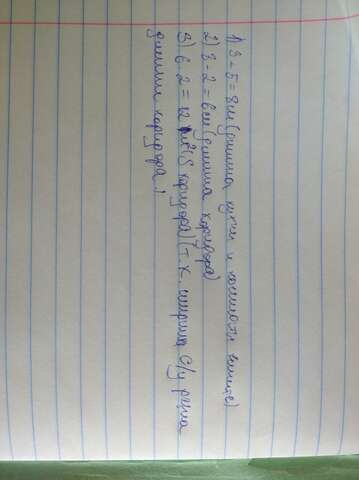 1) 3 + 5 = 8 м (длинна кухни и комнаты вместе)
2) 8 - 2 = 6 м (длинна коридора)
3) 6 · 2 = 12 м² (S коридора) (т.к. ширина с/у равна
длинна коридора)